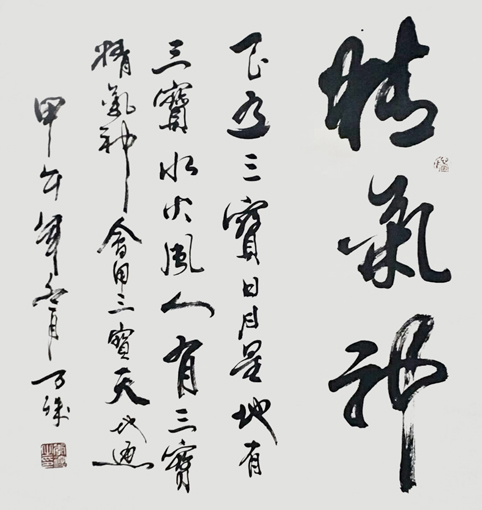 精氣神
天有三寶日月星地有
三寶水火風人有三寶
精氣神會用三寶天地通
甲午年冬月